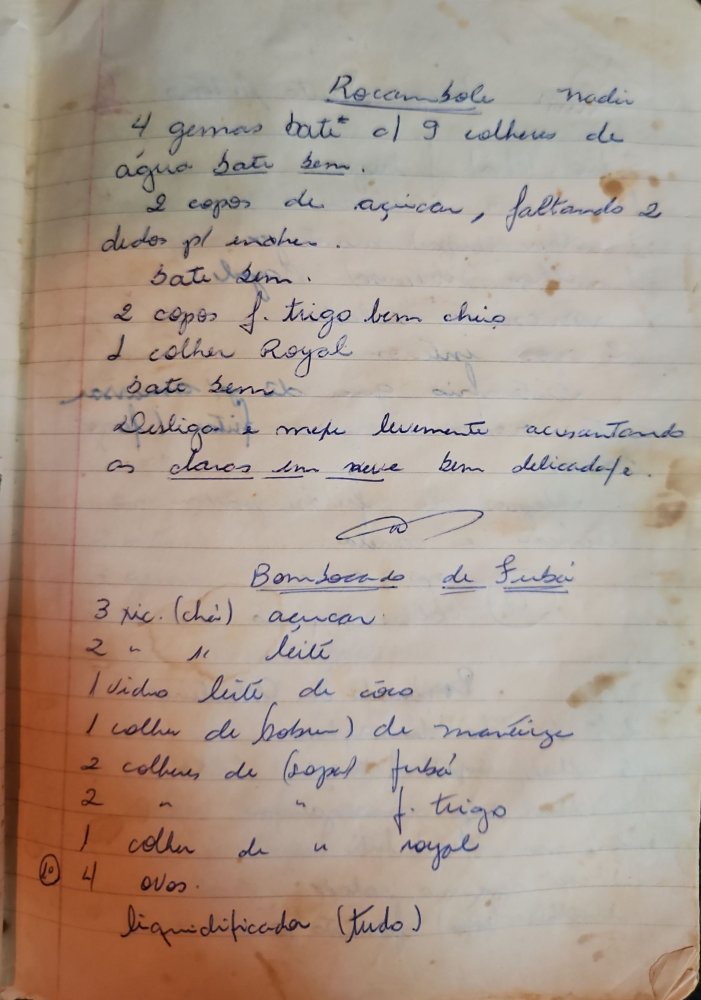 Rocambole Nadir
4 gemas bate c/ 9 colheres de
água bate bem.
2 copos de açúcar, faltando 2
dedos p/ encher.
bate bem.
2 copos f. trigo bem cheio
1 colher Royal
bate bem
Desliga e mexe levemente acresantando
as claras em neve bem
Bombocado de Fubá
3 xic. (chá) açucar
2 " " leite
1 vidro leite de côco
1 colher de (sobrem) de manteiga
2 colheres de (sopa) fubá
2 " " f. trigo
1 colher de " royal
1º 4 ovos.
liquidificador (tudo)